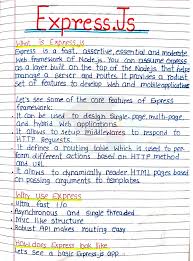 Express.Js
What is Express.js
Express is a fast, assertive, essential and moderate
web framework of Node.js. You can assume express
as a layer built on the top of the Node.js that helps
manage a server and routes. It provides a robust
set of features to develop web and mobile applications
Let's see some of the core features of Express
framework:
It can be used to design single-page, multi-page,
and hybrid web applications.
It allows to setup middlewares to respond to
HTTP Requests.
It defines a routing table which is used to per
form different actions based on HTTP method
and URL.
It allows to dynamically render HTML pages based
on passing arguments to templates.
Why use Express
Ultra fast I/O
Asynchronous and single threaded
MVC like structure
Robust API makes routing easy
How does Express look like
Let's see a basic Express.js app